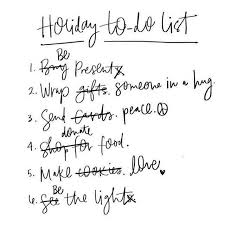 Holiday to-do list
Be
1. Buy Presents
2. Wrap gifts. someone in a hug
3. Send cards. peace.
donate
4. Shop for food.
5. Make cookies. love.
Be
6. See the lights